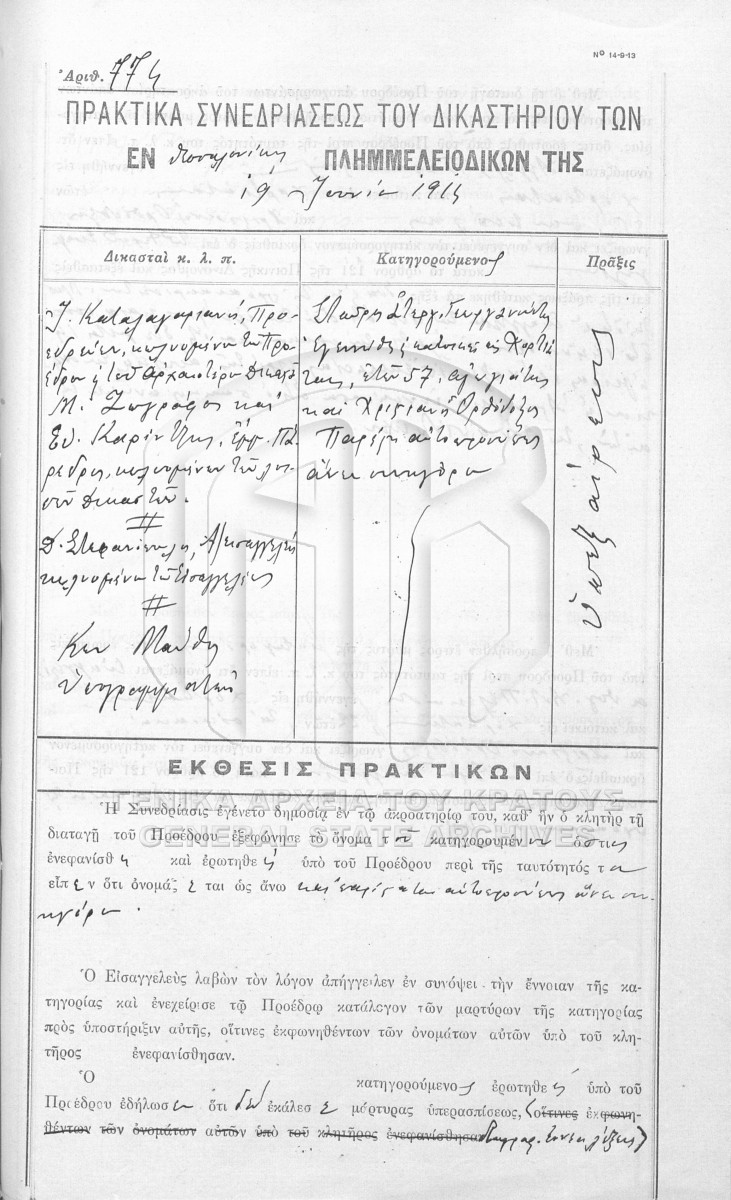 Nº 14-9-13
Ἀριθ. 774
ΠΡΑΚΤΙΚΑ ΣΥΝΕΔΡΙΑΣΕΩΣ ΤΟΥ ΔΙΚΑΣΤΗΡΙΟΥ ΤΩΝ
ΕΝ ΠΛΗΜΜΕΛΕΙΟΔΙΚΩΝ ΤΗΣ
19 Ἰουνίου 191
Δικασταὶ κ. λ. π.
Κατηγορούμενος
Πρᾶξις
Προ-
εδρεύων, κωλυομένου τοῦ Προ
έδρου
Μ. Ζωγράφος καὶ
Εὐ. Πά
ρεδρος, κωλυομένων τῶν
Δικαστῶν.
Δ. Ἀντεισαγγελεὺς
κωλυομένου τοῦ Εἰσαγγελέως
Κων
Ὑπογραμματεὺς
Στεργ.
ἐγεννήθη κατοικεῖ εἰς Χορτιά
ἐτῶν 57, ἀγωγιάτης
καὶ Χριστιανὸς Ὀρθόδοξος
Παρέστη αὐτοπροσώπως
ἄνευ συνηγόρου
Ὑπεξαίρεσις
ΕΚΘΕΣΙΣ ΠΡΑΚΤΙΚΩΝ
ΓΕΝΙΚΑ ΑΡΧΕΙΑ ΤΟΥ ΚΡΑΤΟΥΣ
GENERAL STATE ARCHIVES
Ἡ Συνεδρίασις ἐγένετο δημοσίᾳ ἐν τῷ ἀκροατηρίῳ του, καθ' ἣν ὁ κλητὴρ τῇ
διαταγῇ τοῦ Προέδρου ἐξεφώνησε τὸ ὄνομα τοῦ κατηγορουμένου ὅστις
ἐνεφανίσθη καὶ ἐρωτηθεὶς ὑπὸ τοῦ Προέδρου περὶ τῆς ταυτότητός του
εἶπεν ὅτι ὀνομάζεται ὡς ἄνω καὶ αὐτοπροσώπως ἄνευ συ-
νηγόρου.
Ὁ Εἰσαγγελεὺς λαβὼν τὸν λόγον ἀπήγγειλεν ἐν συνόψει τὴν ἔννοιαν τῆς κα-
τηγορίας καὶ ἐνεχείρισε τῷ Προέδρῳ κατάλογον τῶν μαρτύρων τῆς κατηγορίας
πρὸς ὑποστήριξιν αὐτῆς, οἵτινες ἐκφωνηθέντων τῶν ὀνομάτων αὐτῶν ὑπὸ τοῦ κλη-
τῆρος ἐνεφανίσθησαν.
Ὁ κατηγορούμενος ἐρωτηθεὶς ὑπὸ τοῦ
Προέδρου ἐδήλωσεν ὅτι δὲν ἐκάλεσε μάρτυρας ὑπερασπίσεως, (οἵτινες ἐκφωνη-
θέντων τῶν ὀνομάτων αὐτῶν ὑπὸ τοῦ κλητῆρος ἐνεφανίσθησαν λέξεις)